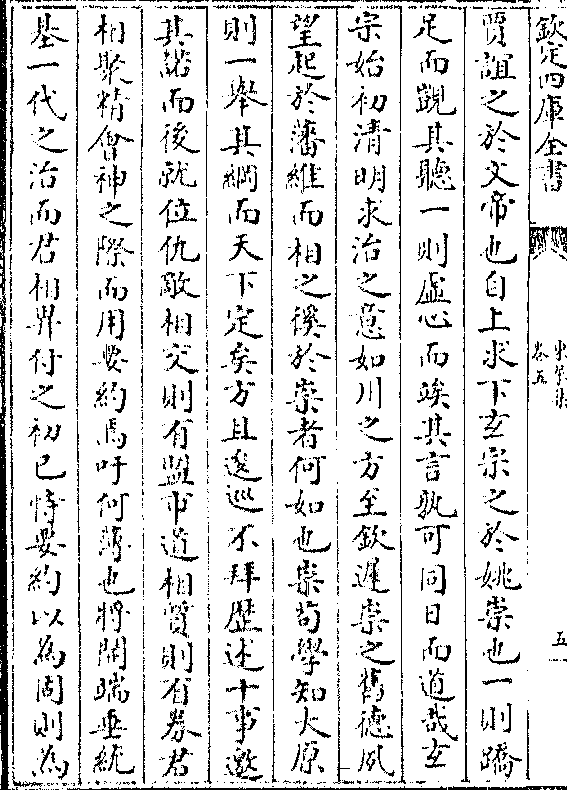 欽定四庫全書
卷五
五
賈誼之於文帝也自上求下玄宗之於姚崇也一則蹻
足而覬其聽一則虛心而竢其言孰可同日而道哉玄
宗始初清明求治之意如川之方至欽遲崇之舊德夙
望起於藩維而相之徯於崇者何如也崇茍學知大原
則一舉其綱而天下定矣方且逡巡不拜歷述十事邀
其諾而後就位仇敵相交則有盟市道相質則有券君
相聚精㑹神之際而用要約焉吁何薄也將開端垂統
基一代之治而君相𢌿付之初已恃要約以為固則為